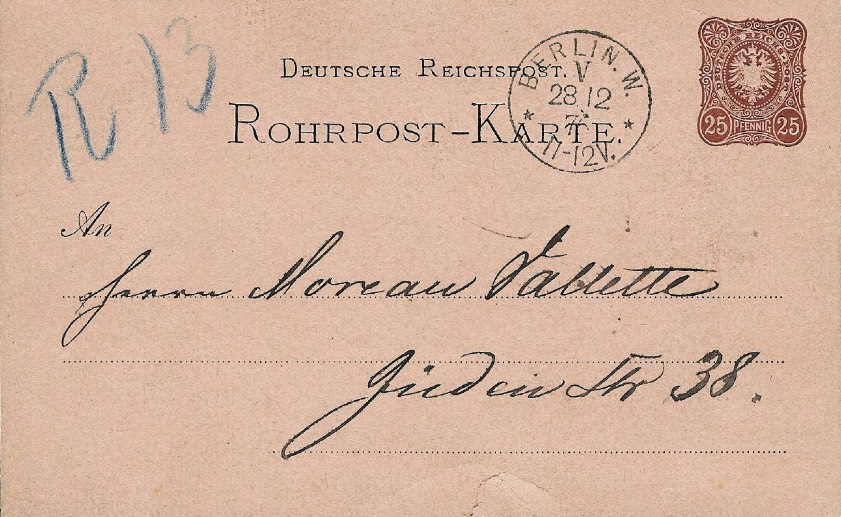 R 13
DEUTSCHE REICHSPOST.
ROHRPOST-KARTE.
BERLIN. W.
V
28 12
7*
11-12V.
DEUTSCHE REICHSPOST
25 PFENNIG 25
An
Herrn Moreau Vallette
Jüden Str 38.